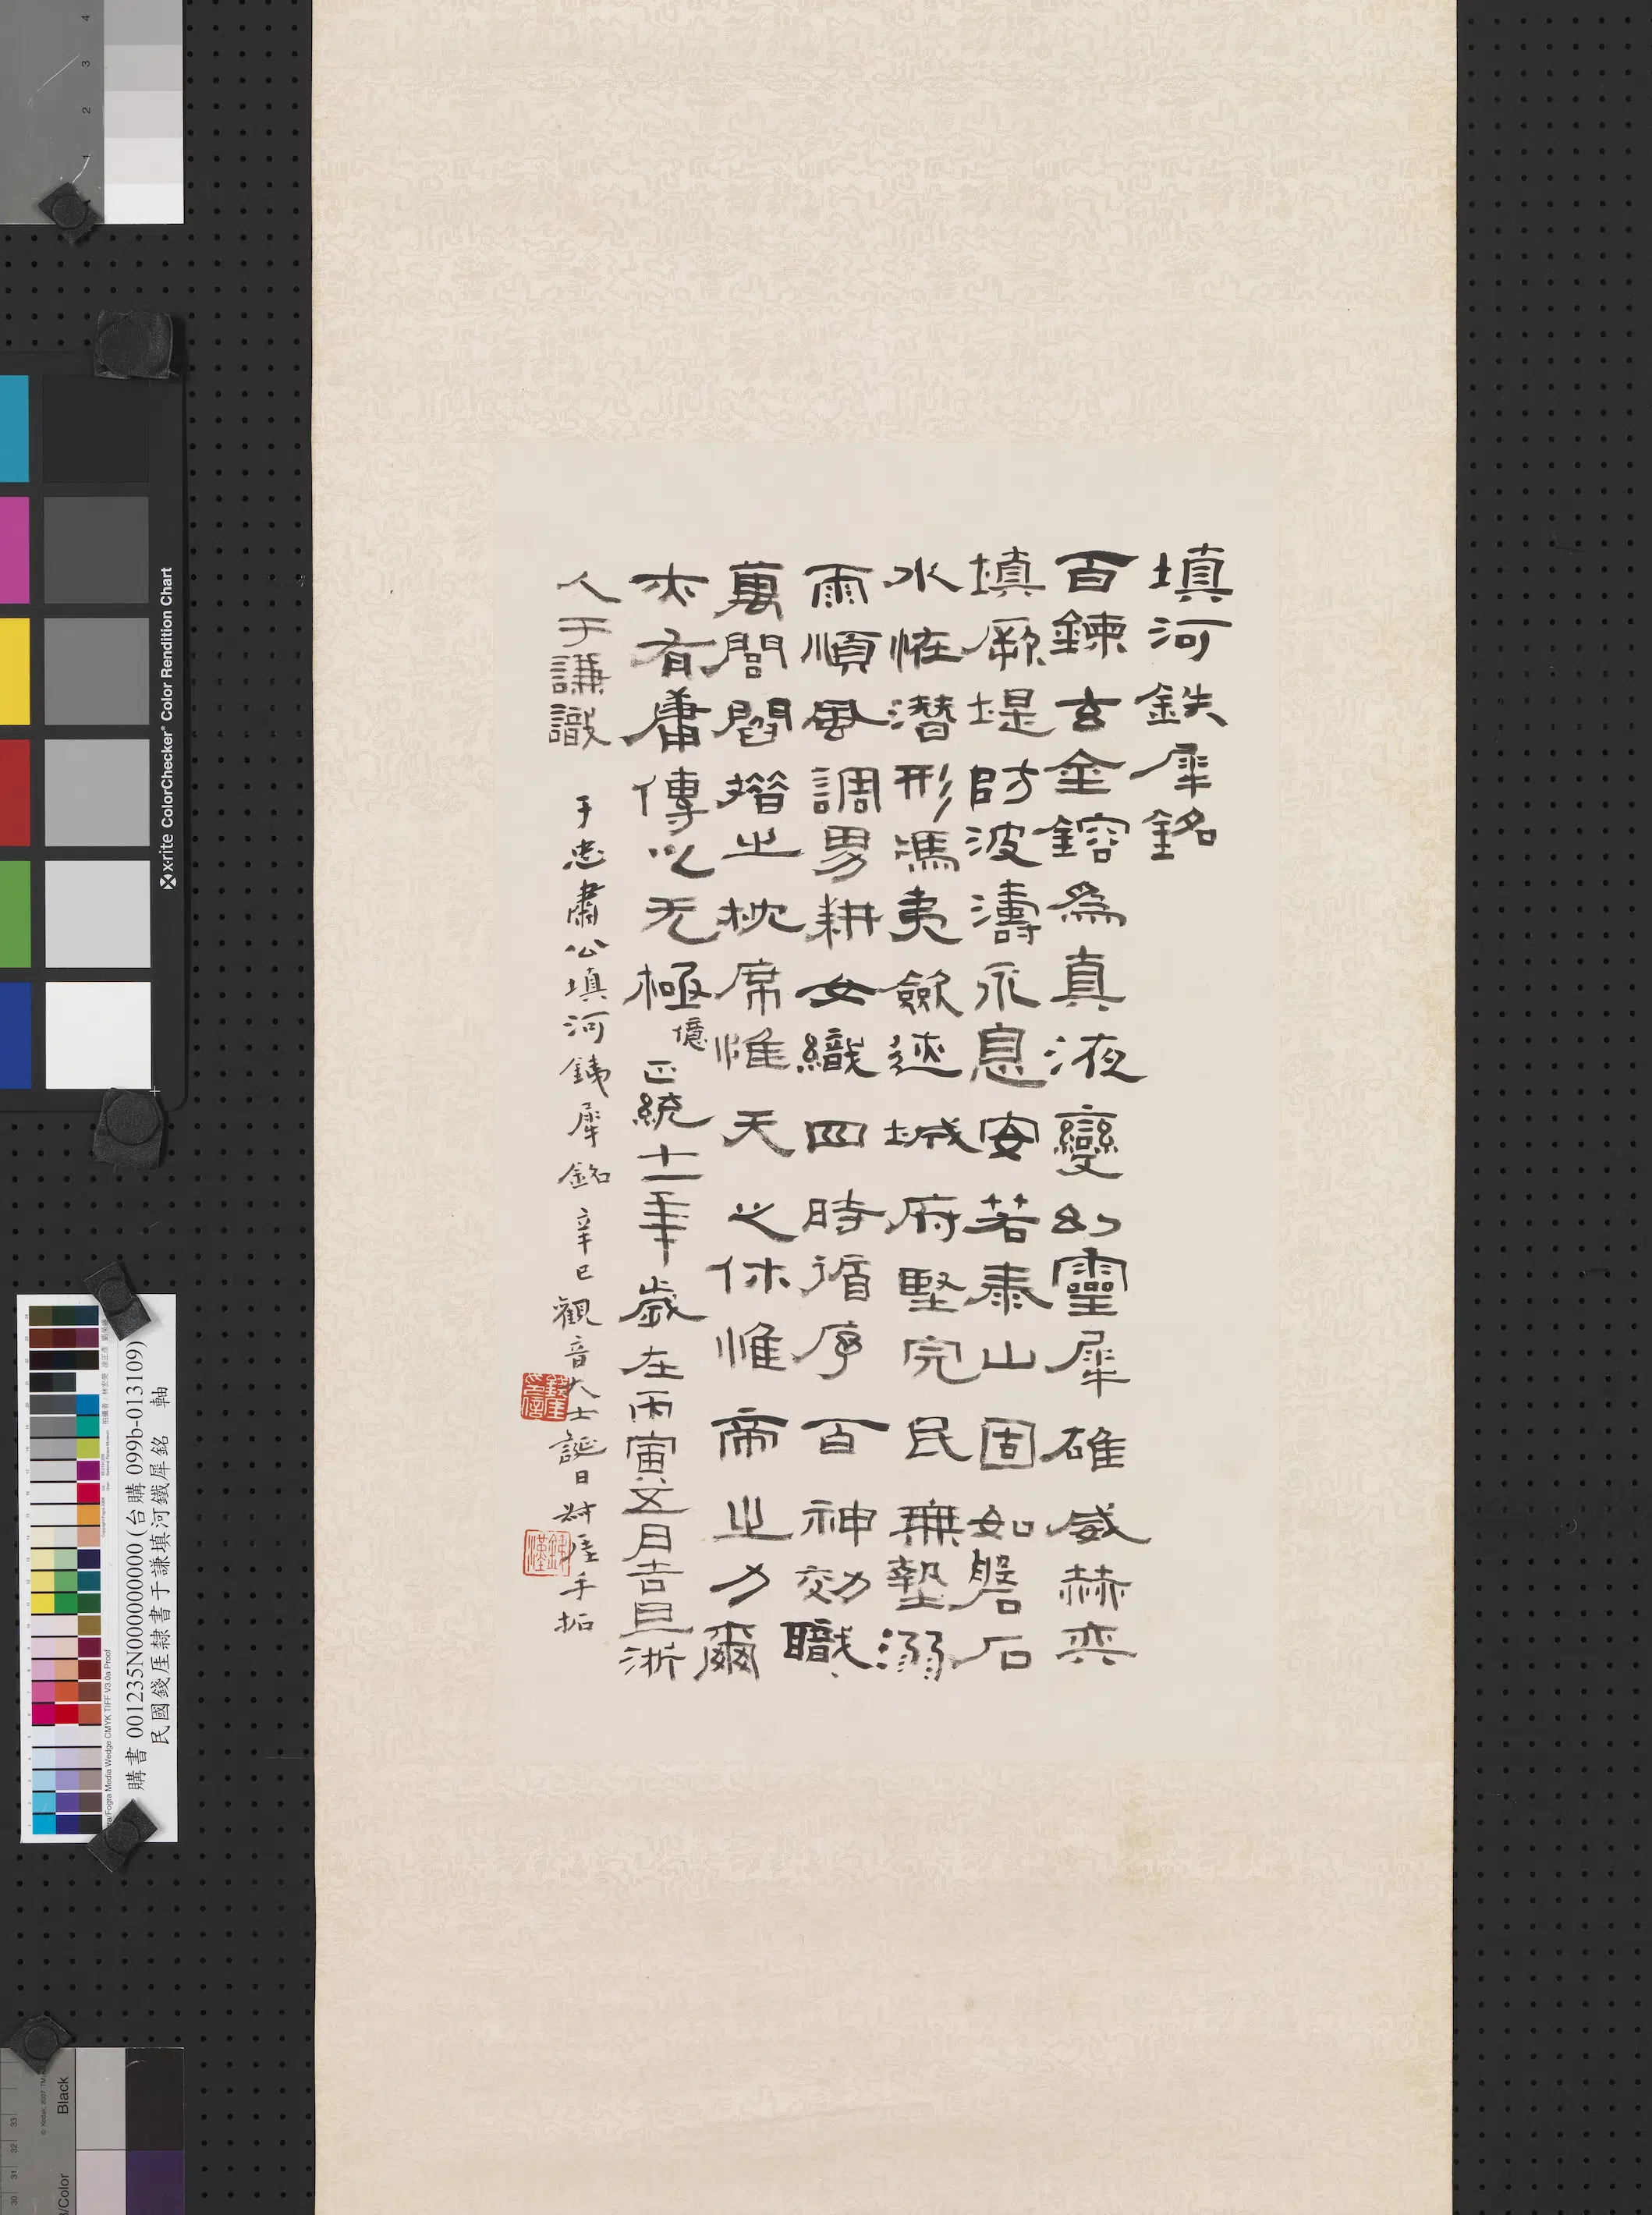 填河鉄犀銘
百鍊玄金鎔為真液變幻靈犀雄威赫奕
填厥堤防波濤永息安若泰山固如磐石
水恠潛形馮夷斂迹城府堅完民無墊溺
雨順風調男耕女織四時循序百神効職
萬閭閻措之枕席惟天之休惟帝之力爾
亦有庸傳以无極 億 正統十一年歲在丙寅五月吉旦浙
人于謙識 于忠肅公填河銕犀銘 辛巳觀音大士誕日 厓手拓
購書 001235N000000000 (台購 099b-013109)
民國錢厓隸書于謙填河鐵犀銘 軸
x-rite ColorChecker® Color Rendition Chart
Black
/Color
a/Fogra Media Wedge CMYK TIFF V3.0a Proof
4
3
2
1
33
32
31
30